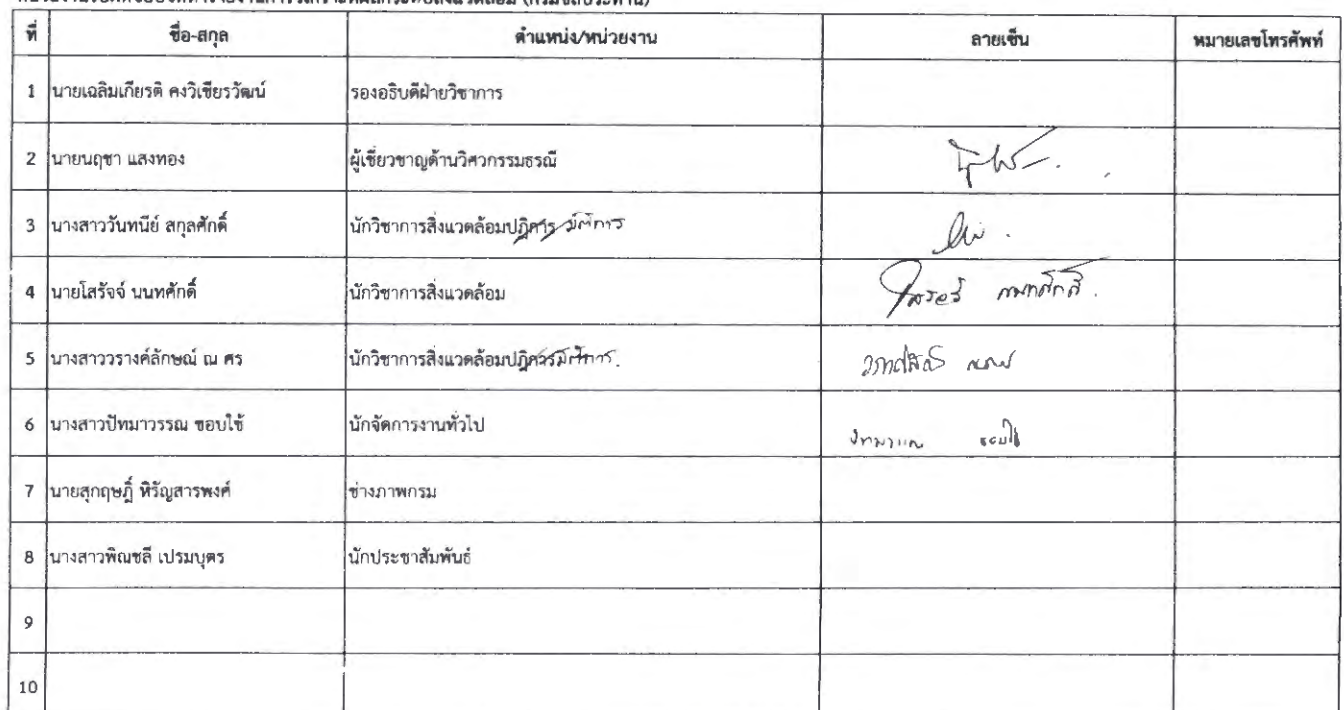 ที่ ชื่อ-สกุล ตำแหน่ง/หน่วยงาน ลายเซ็น หมายเลขโทรศัพท์
1 นายเฉลิมเกียรติ คงวิเชียรวัฒน์ รองอธิบดีฝ่ายวิชาการ
2 นายนฤชา แสงทอง ผู้เชี่ยวชาญด้านวิศวกรรมธรณี
3 นางสาววันทนีย์ สกุลศักดิ์ นักวิชาการสิ่งแวดล้อมปฏิการ
4 นายโสรัจจ์ นนทศักดิ์ นักวิชาการสิ่งแวดล้อม
5 นางสาววรางค์ลักษณ์ ณ ศร นักวิชาการสิ่งแวดล้อม
6 นางสาวปัทมาวรรณ ชอบใช้ นักจัดการงานทั่วไป
7 นายสุกฤษฎิ์ หิรัญสารพงศ์ ช่างภาพกรม
8 นางสาวพิณชลี เปรมบุตร นักประชาสัมพันธ์
9
10